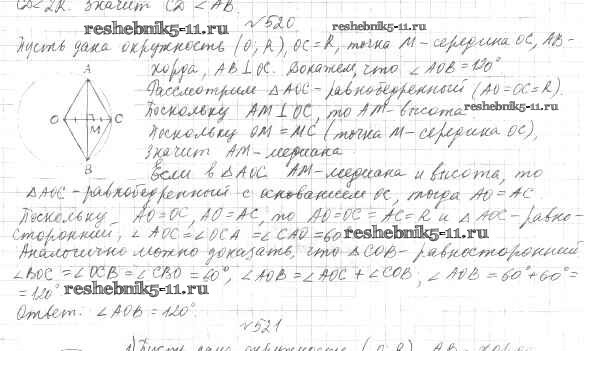 CD < 2R. Значит CD < AB.
reshebnik5-11.ru
№520
reshebnik5-11.ru
Пусть дана окружность (O, R), OC = R, точка M - середина OC, AB -
хорда, AB ⊥ OC. Докажем, что ∠AOB = 120°
Рассмотрим △AOC - равнобедренный (AO = OC = R).
Поскольку AM ⊥ OC, то AM - высота.
reshebnik5-11.ru
Поскольку OM = MC (точка M - середина OC),
значит AM - медиана.
Если в △AOC AM - медиана и высота, то
A
O
M
C
B
△AOC - равнобедренный с основанием OC, тогда AO = AC
Поскольку AO = OC, AO = AC, то AO = OC = AC = R и △AOC - равно-
сторонний, ∠AOC = ∠OCA = ∠CAO = 60
reshebnik5-11.ru
Аналогично можно доказать, что △COB - равносторонний,
∠BOC = ∠OCB = ∠CBO = 60°, ∠AOB = ∠AOC + ∠COB, ∠AOB = 60° + 60° =
= 120°
reshebnik5-11.ru
Ответ. ∠AOB = 120°.
№521
1) Пусть дана окружность (O, R), AB